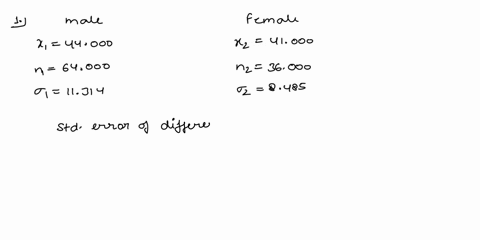 1.) male female
x₁ = 44.000 x₂ = 41.000
n = 64.000 n₂ = 36.000
σ₁ = 11.314 σ₂ = 8.485
std. error of differe